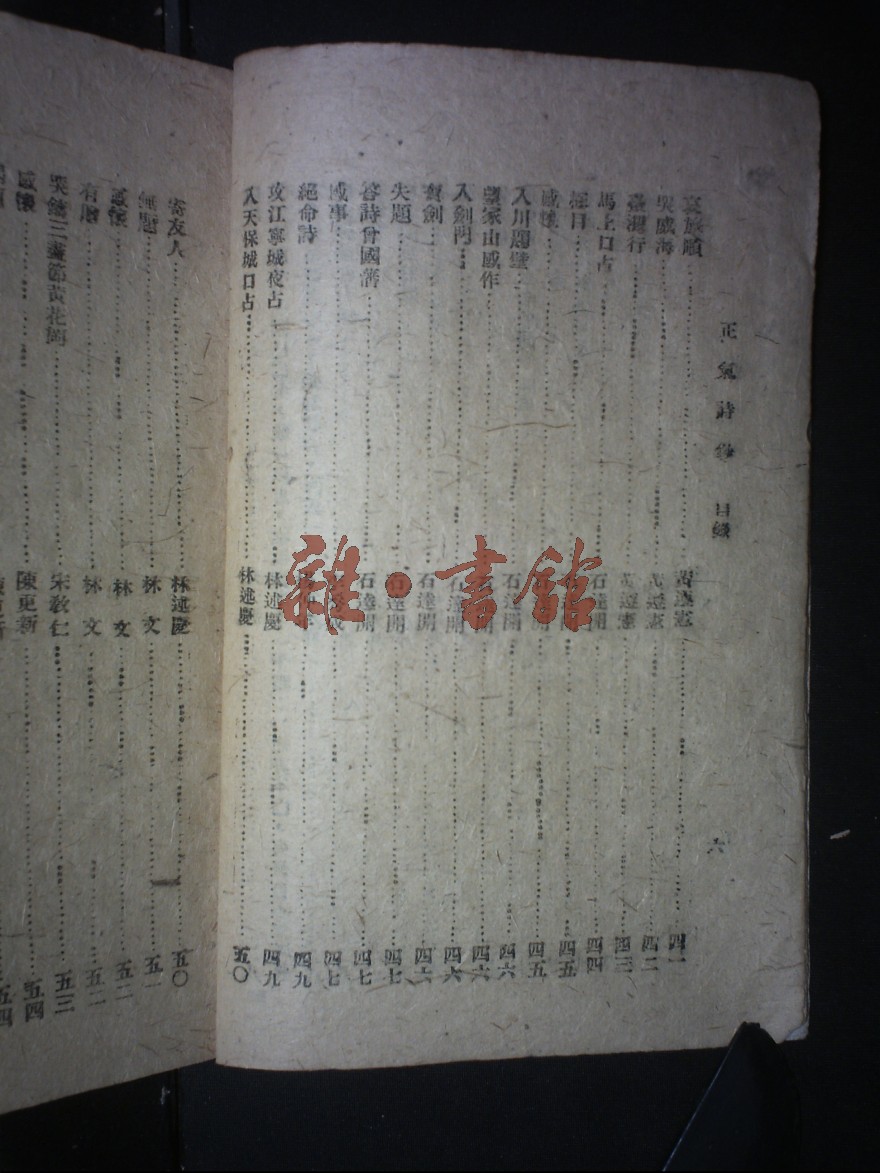 正氣詩鈔　目錄
六
哀旅順 黃遵憲 四一
哭威海 黃遵憲 四二
臺灣行 黃遵憲 四三
馬上口占 石達開 四四
石達開 四五
感懷 四五
入川題壁 石達開 四六
望家山感作 四六
入劍門 石達開 四六
寶劍 石達開 四六
失題 石達開 四七
答詩曾國藩 石達開 四七
感事 四七
絕命詩 四九
攻江寧城夜占 林述慶 四九
入天保城口占 林述慶 五〇
寄友人 林述慶 五〇
無題 林文 五一
感懷 林文 五二
有贈 林文 五二
哭鑄三盡節黃花岡 宋教仁 五三
感懷 陳更新 五四
五四
雜·書館